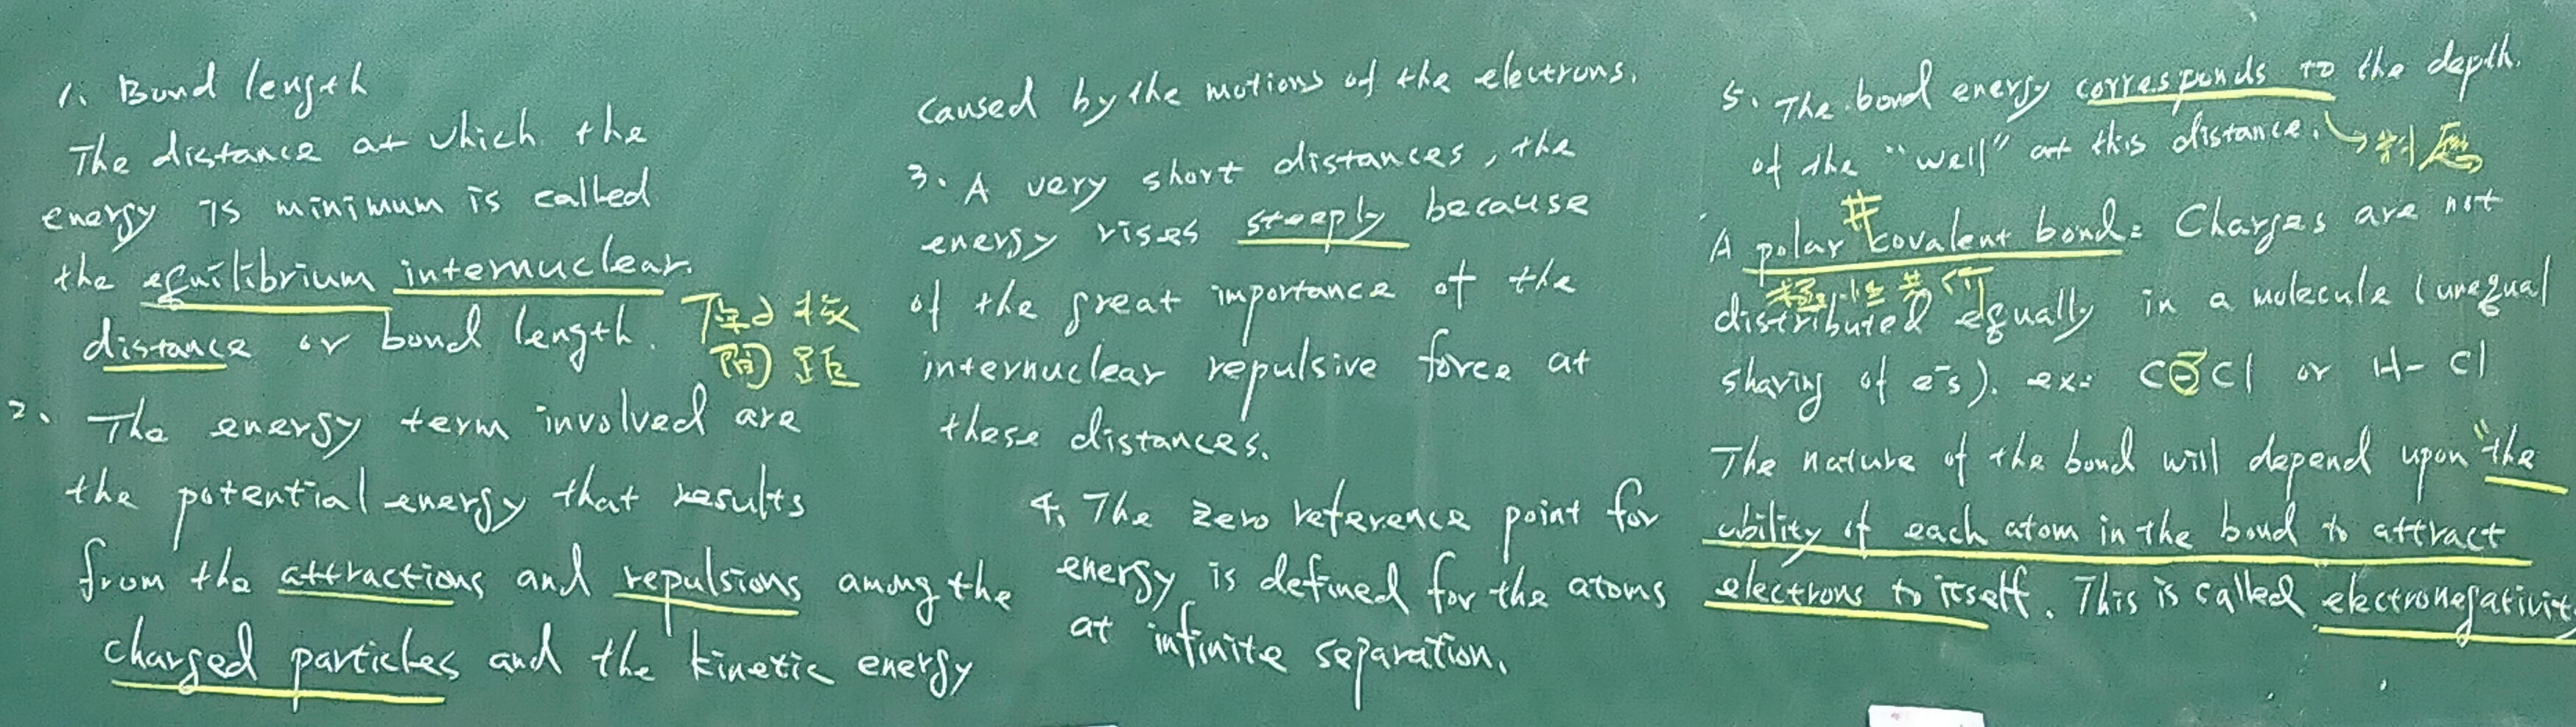 1. Bond length
The distance at which the
energy is minimum is called
the equilibrium internuclear
distance or bond length.
核
間距
2. The energy term involved are
the potential energy that results
from the attractions and repulsions among the
charged particles and the kinetic energy
caused by the motions of the electrons.
3. A very short distances, the
energy rises steeply because
of the great importance of the
internuclear repulsive force at
these distances.
4. The zero reference point for
energy is defined for the atoms
at infinite separation.
5. The bond energy corresponds to the depth
of the "well" at this distance. →
A polar covalent bond: Charges are not
極性共价
distributed equally in a molecule (unequal
sharing of e⁻s). ex: Cl or H-Cl
The nature of the bond will depend upon "the
ability of each atom in the bond to attract
electrons to itself. This is called electronegativit